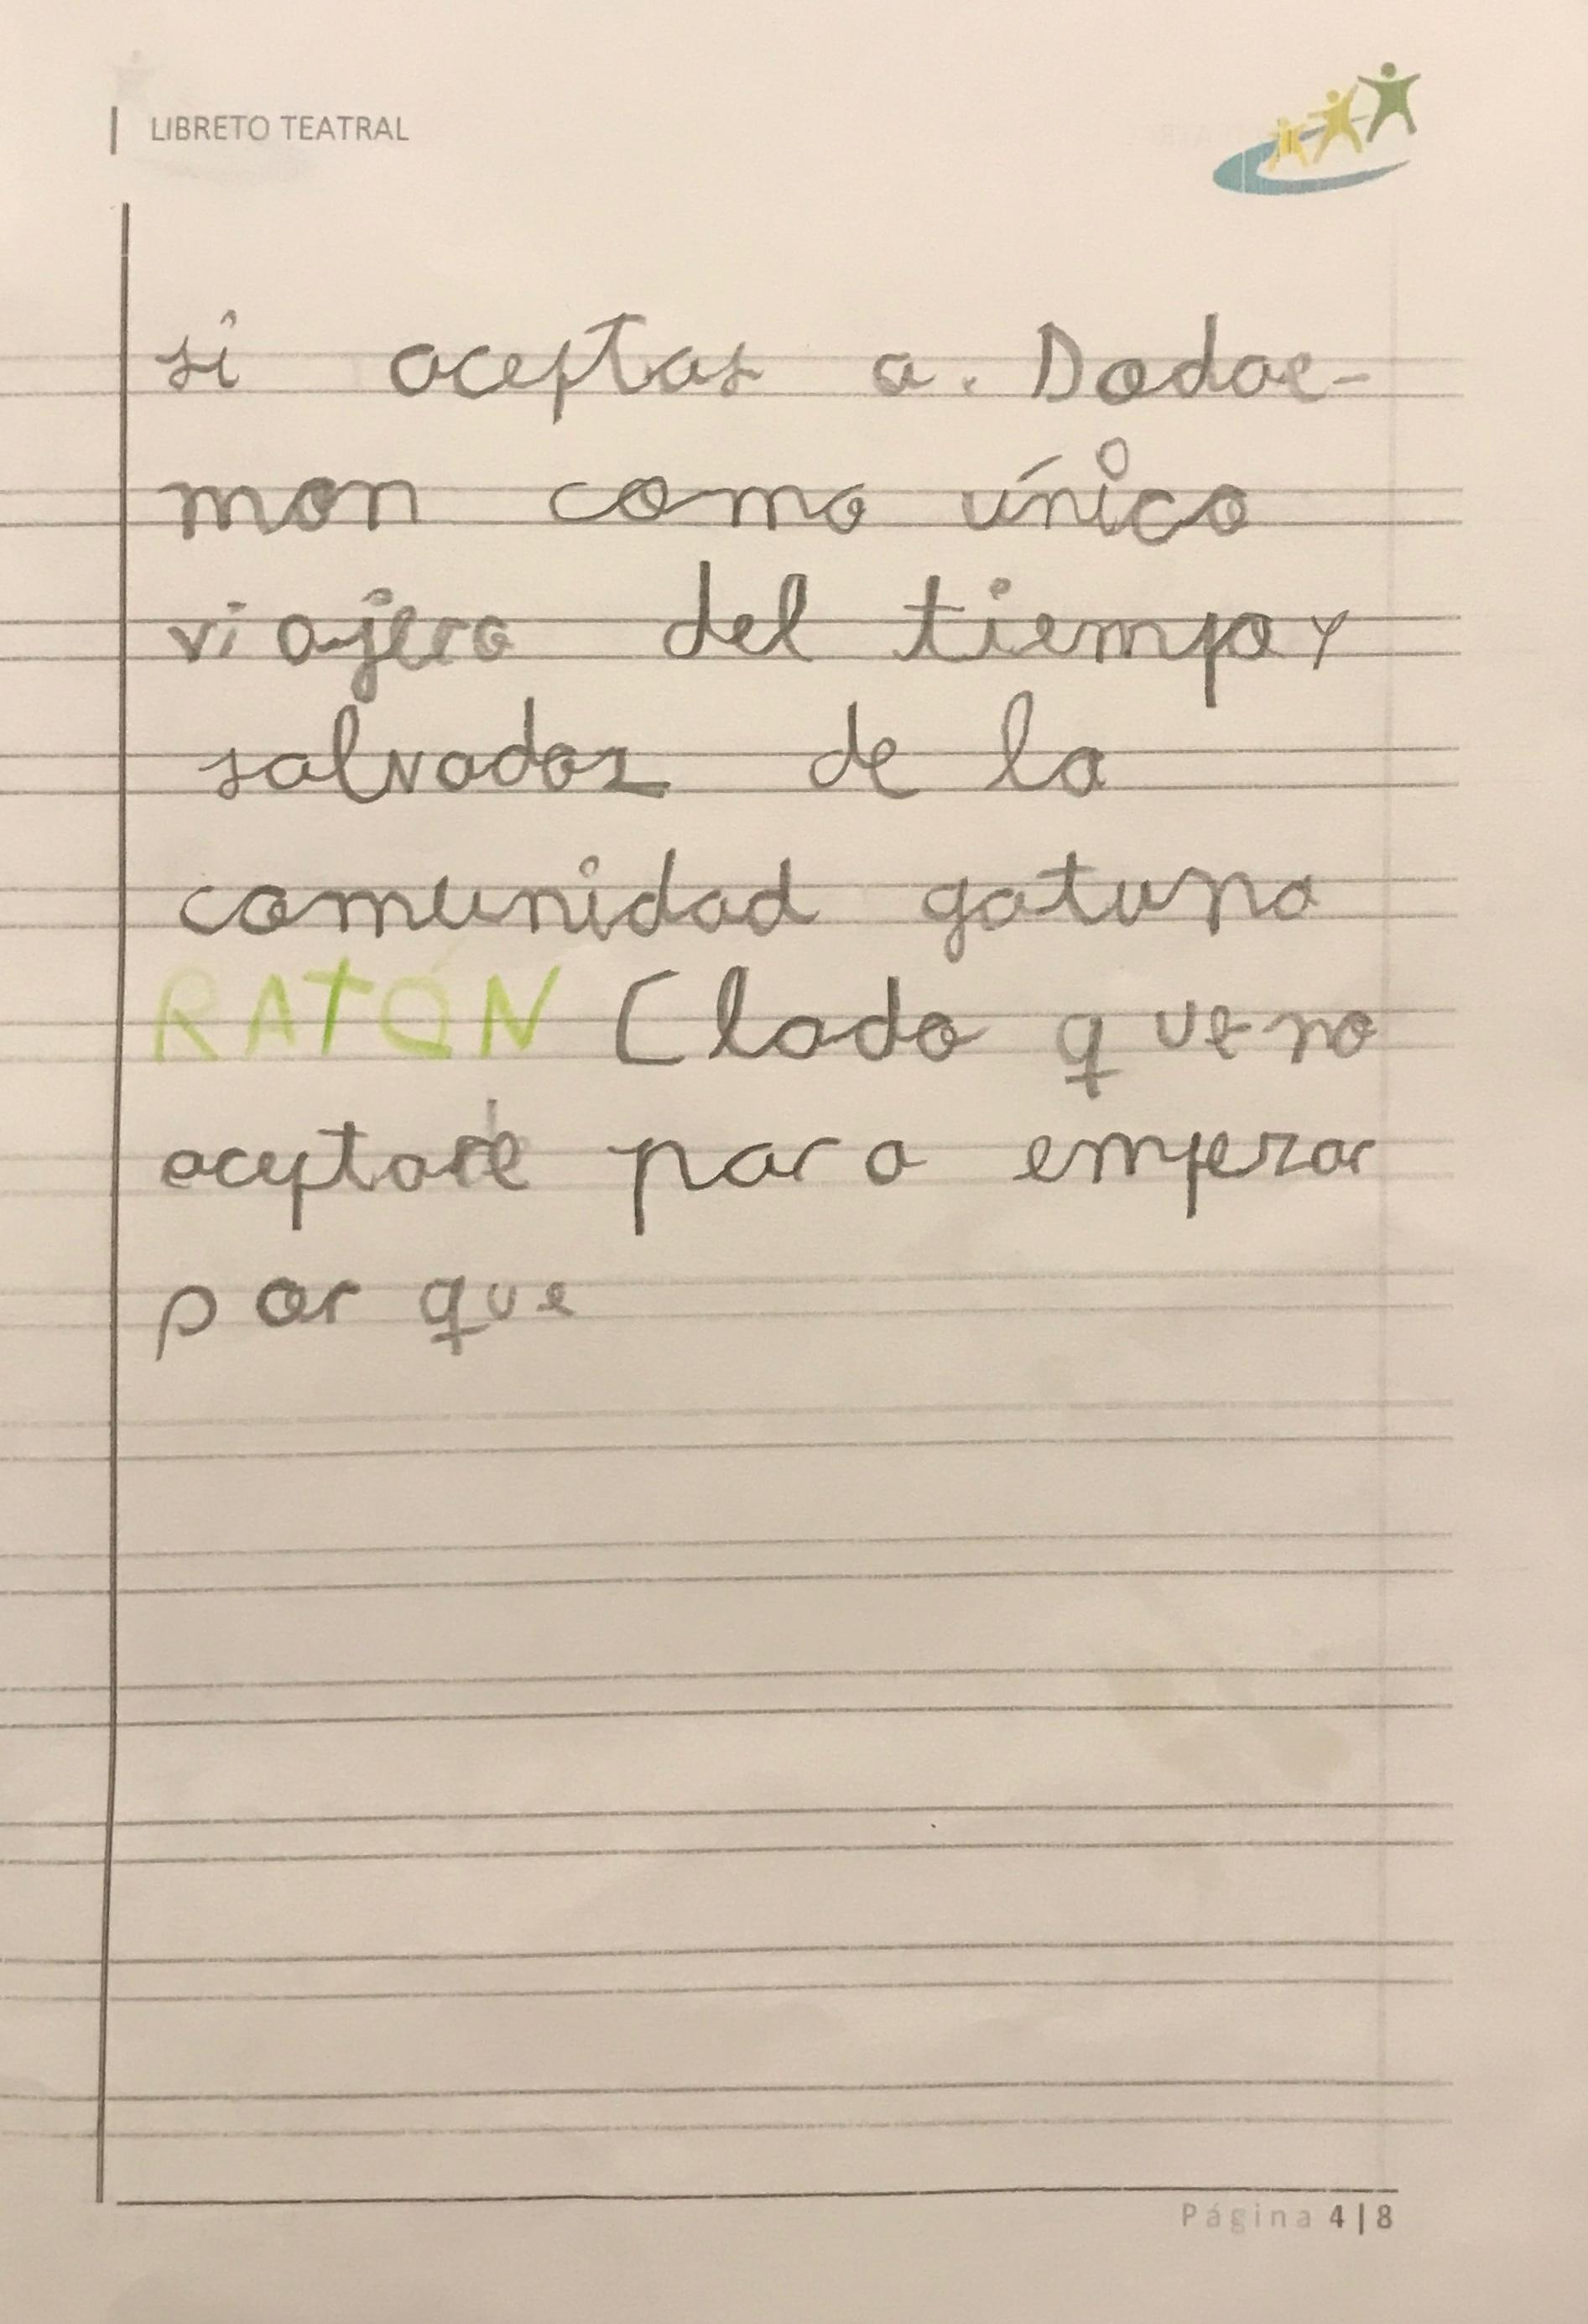 LIBRETO TEATRAL
si aceptas a. Dodoe-
mon como único
viajero del tiempo y
salvador de la
comunidad gatuna
RATÓN Clado que no
aceptaré para empezar
por que
Página 4|8